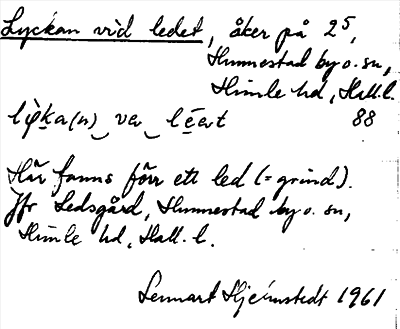 Lyckan vid ledet, åker på 2⁵,
Hunnestad by o. sn,
Himle hd, Hall. l.
88
Här fanns förr ett led (= grind).
Jfr Ledsgård, Hunnestad by o. sn,
Himle hd, Hall. l.
Lennart Hjelmstedt 1961